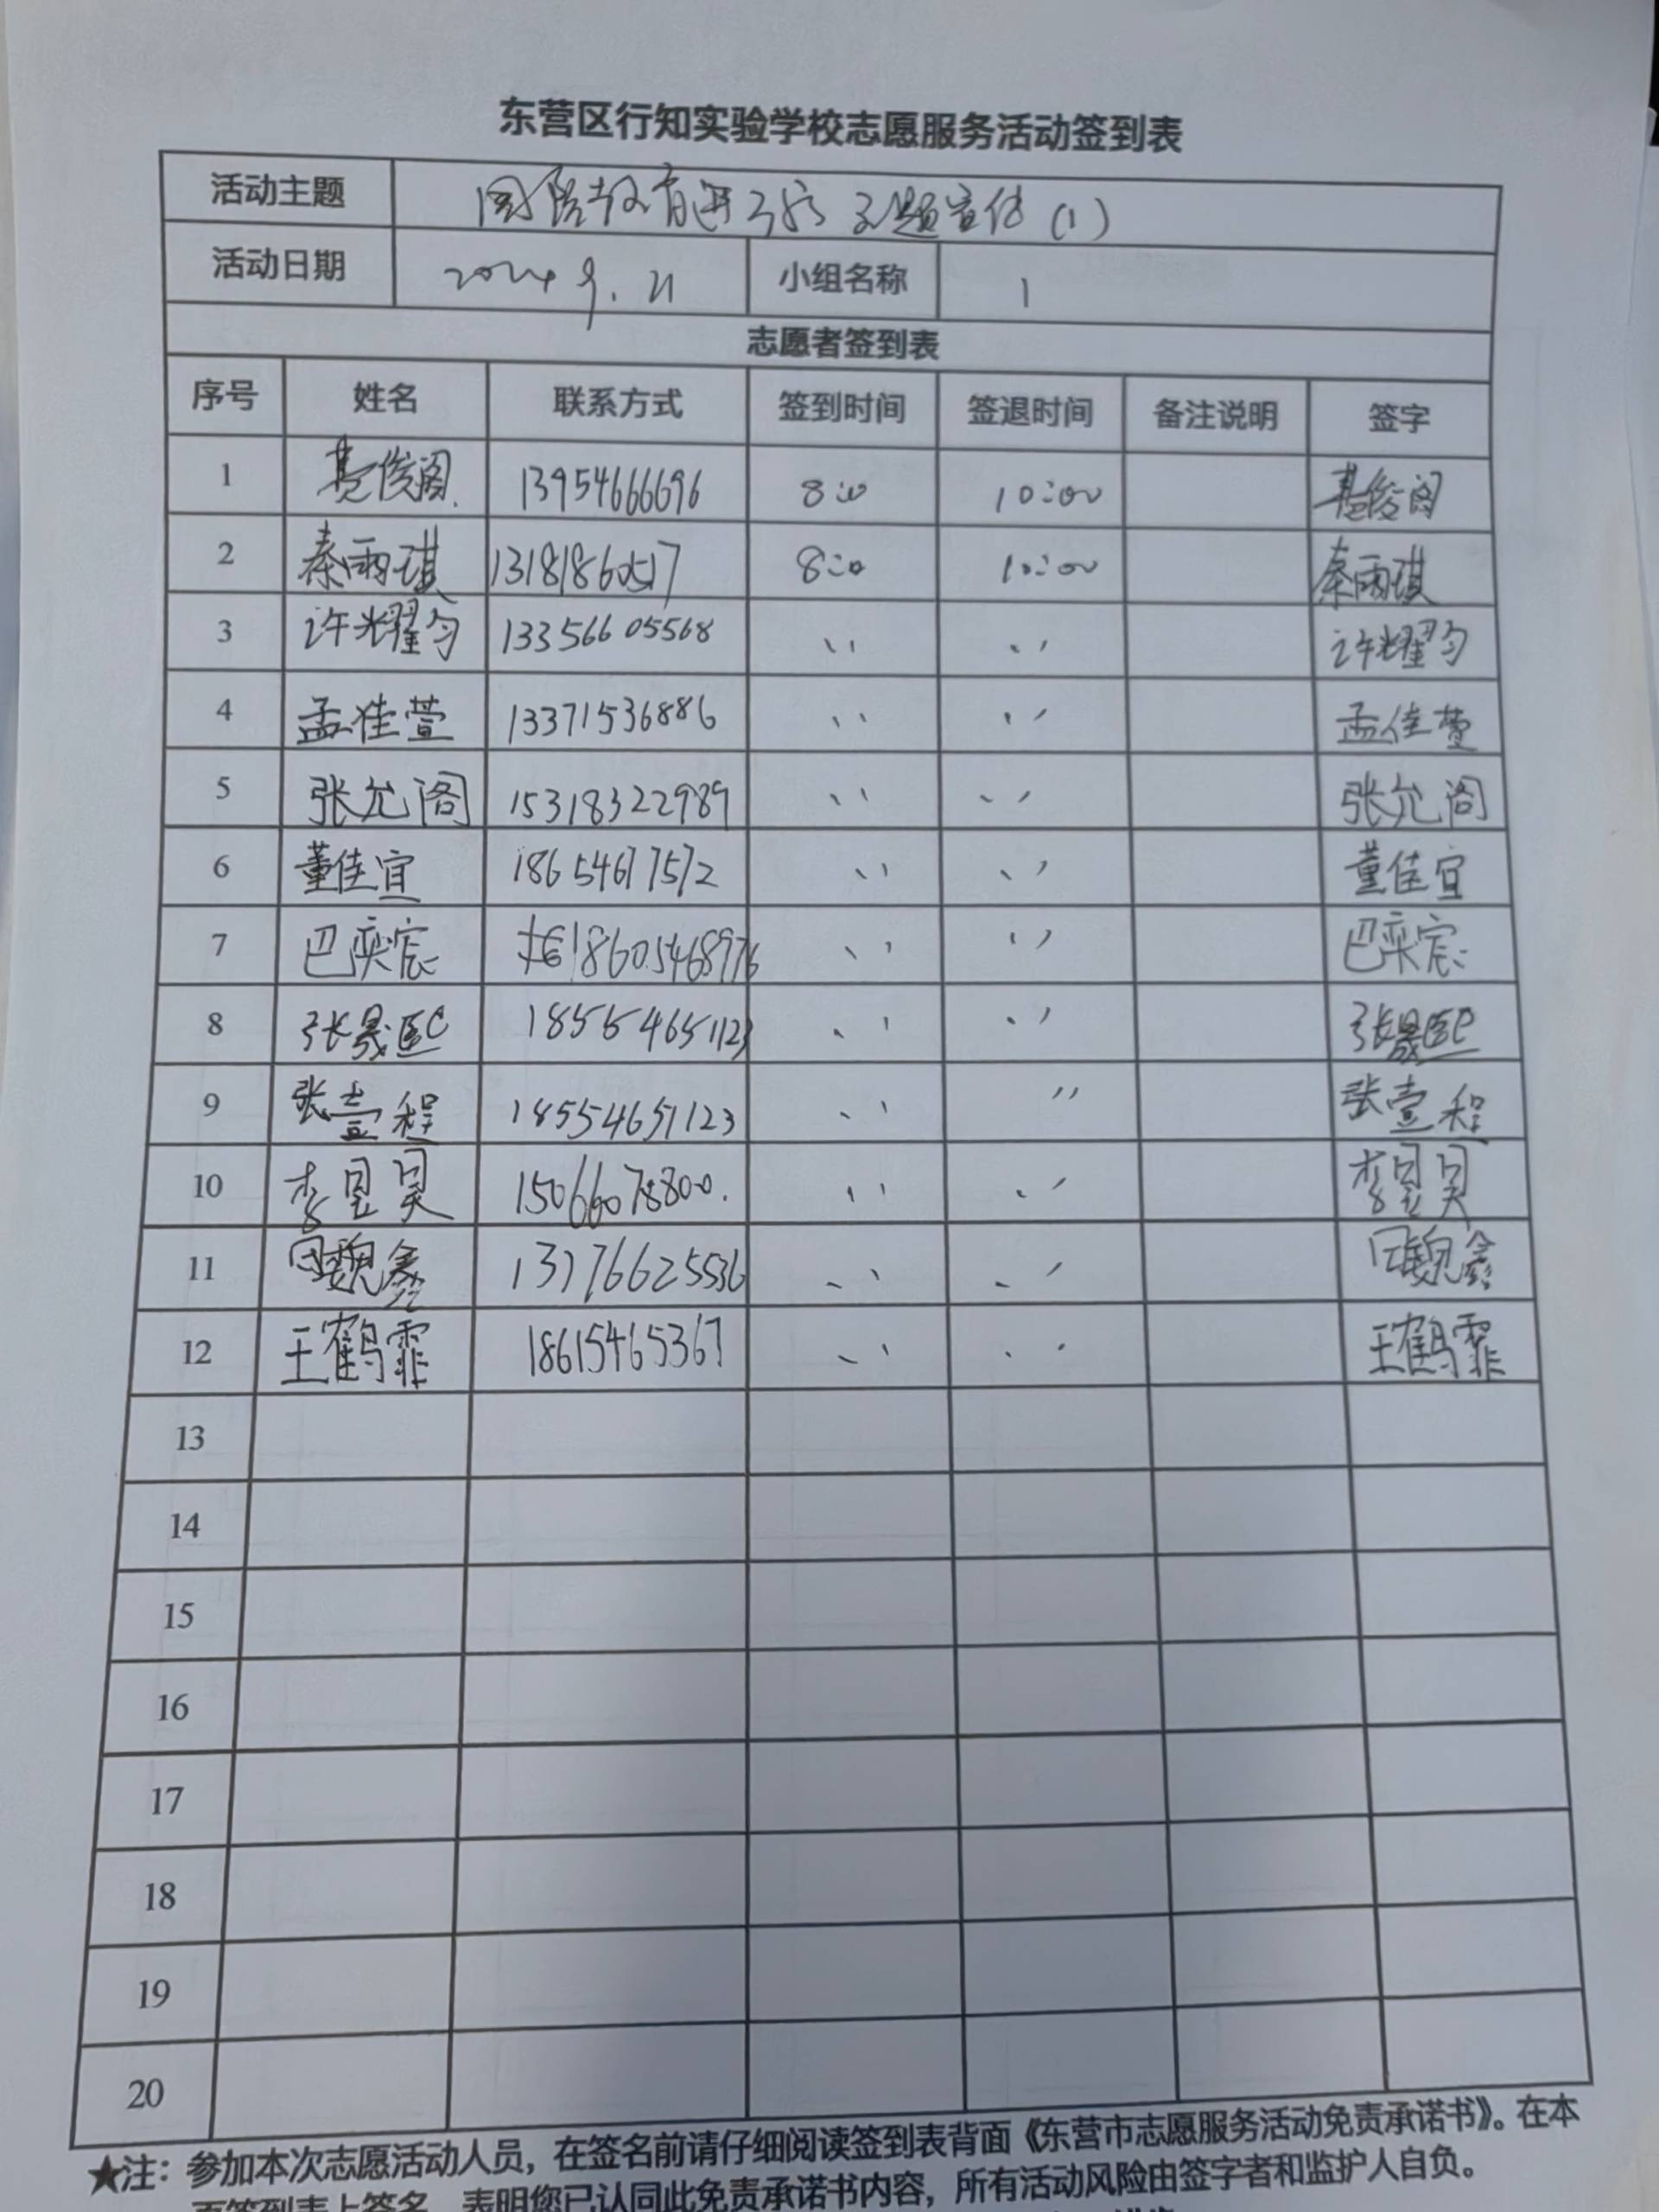 东营区行知实验学校志愿服务活动签到表
活动主题 国防教育进 主题宣传(1)
活动日期 2024 9.21 小组名称 1
志愿者签到表
序号 姓名 联系方式 签到时间 签退时间 备注说明 签字
1 俊阁 13954666696 8:00 10:00 俊阁
2 秦雨琪 13181860517 8:00 10:00 秦雨琪
3 许耀匀 13356605568 〃 〃 许耀匀
4 孟佳萱 13371536886 〃 〃 孟佳萱
5 张允阁 15318322989 〃 〃 张允阁
6 董佳宜 18654677572 〃 〃 董佳宜
7 巴奕宸 18605468976 〃 〃 巴奕宸
8 张晟熙 18554651123 〃 〃 张晟熙
9 张壹程 18554651123 〃 〃 张壹程
10 李昱昊 15066078800 〃 〃 李昱昊
11 魏鑫 〃 〃 魏鑫
12 王鹤霏 18615465367 〃 〃 王鹤霏
13
14
15
16
17
18
19
20
★注：参加本次志愿活动人员，在签名前请仔细阅读签到表背面《东营市志愿服务活动免责承诺书》。在本
页签到表上签名，表明您已认同此免责承诺书内容，所有活动风险由签字者和监护人自负。